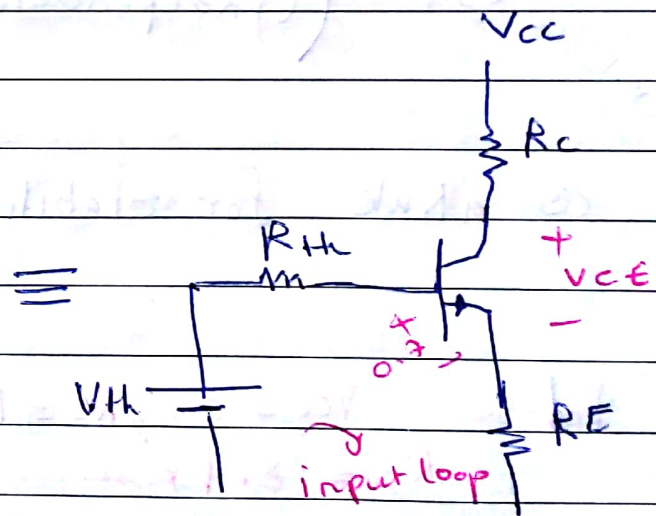 Vcc
Rc
RTh
+
VCE
-
+
0.7
-
VTh
RE
input loop